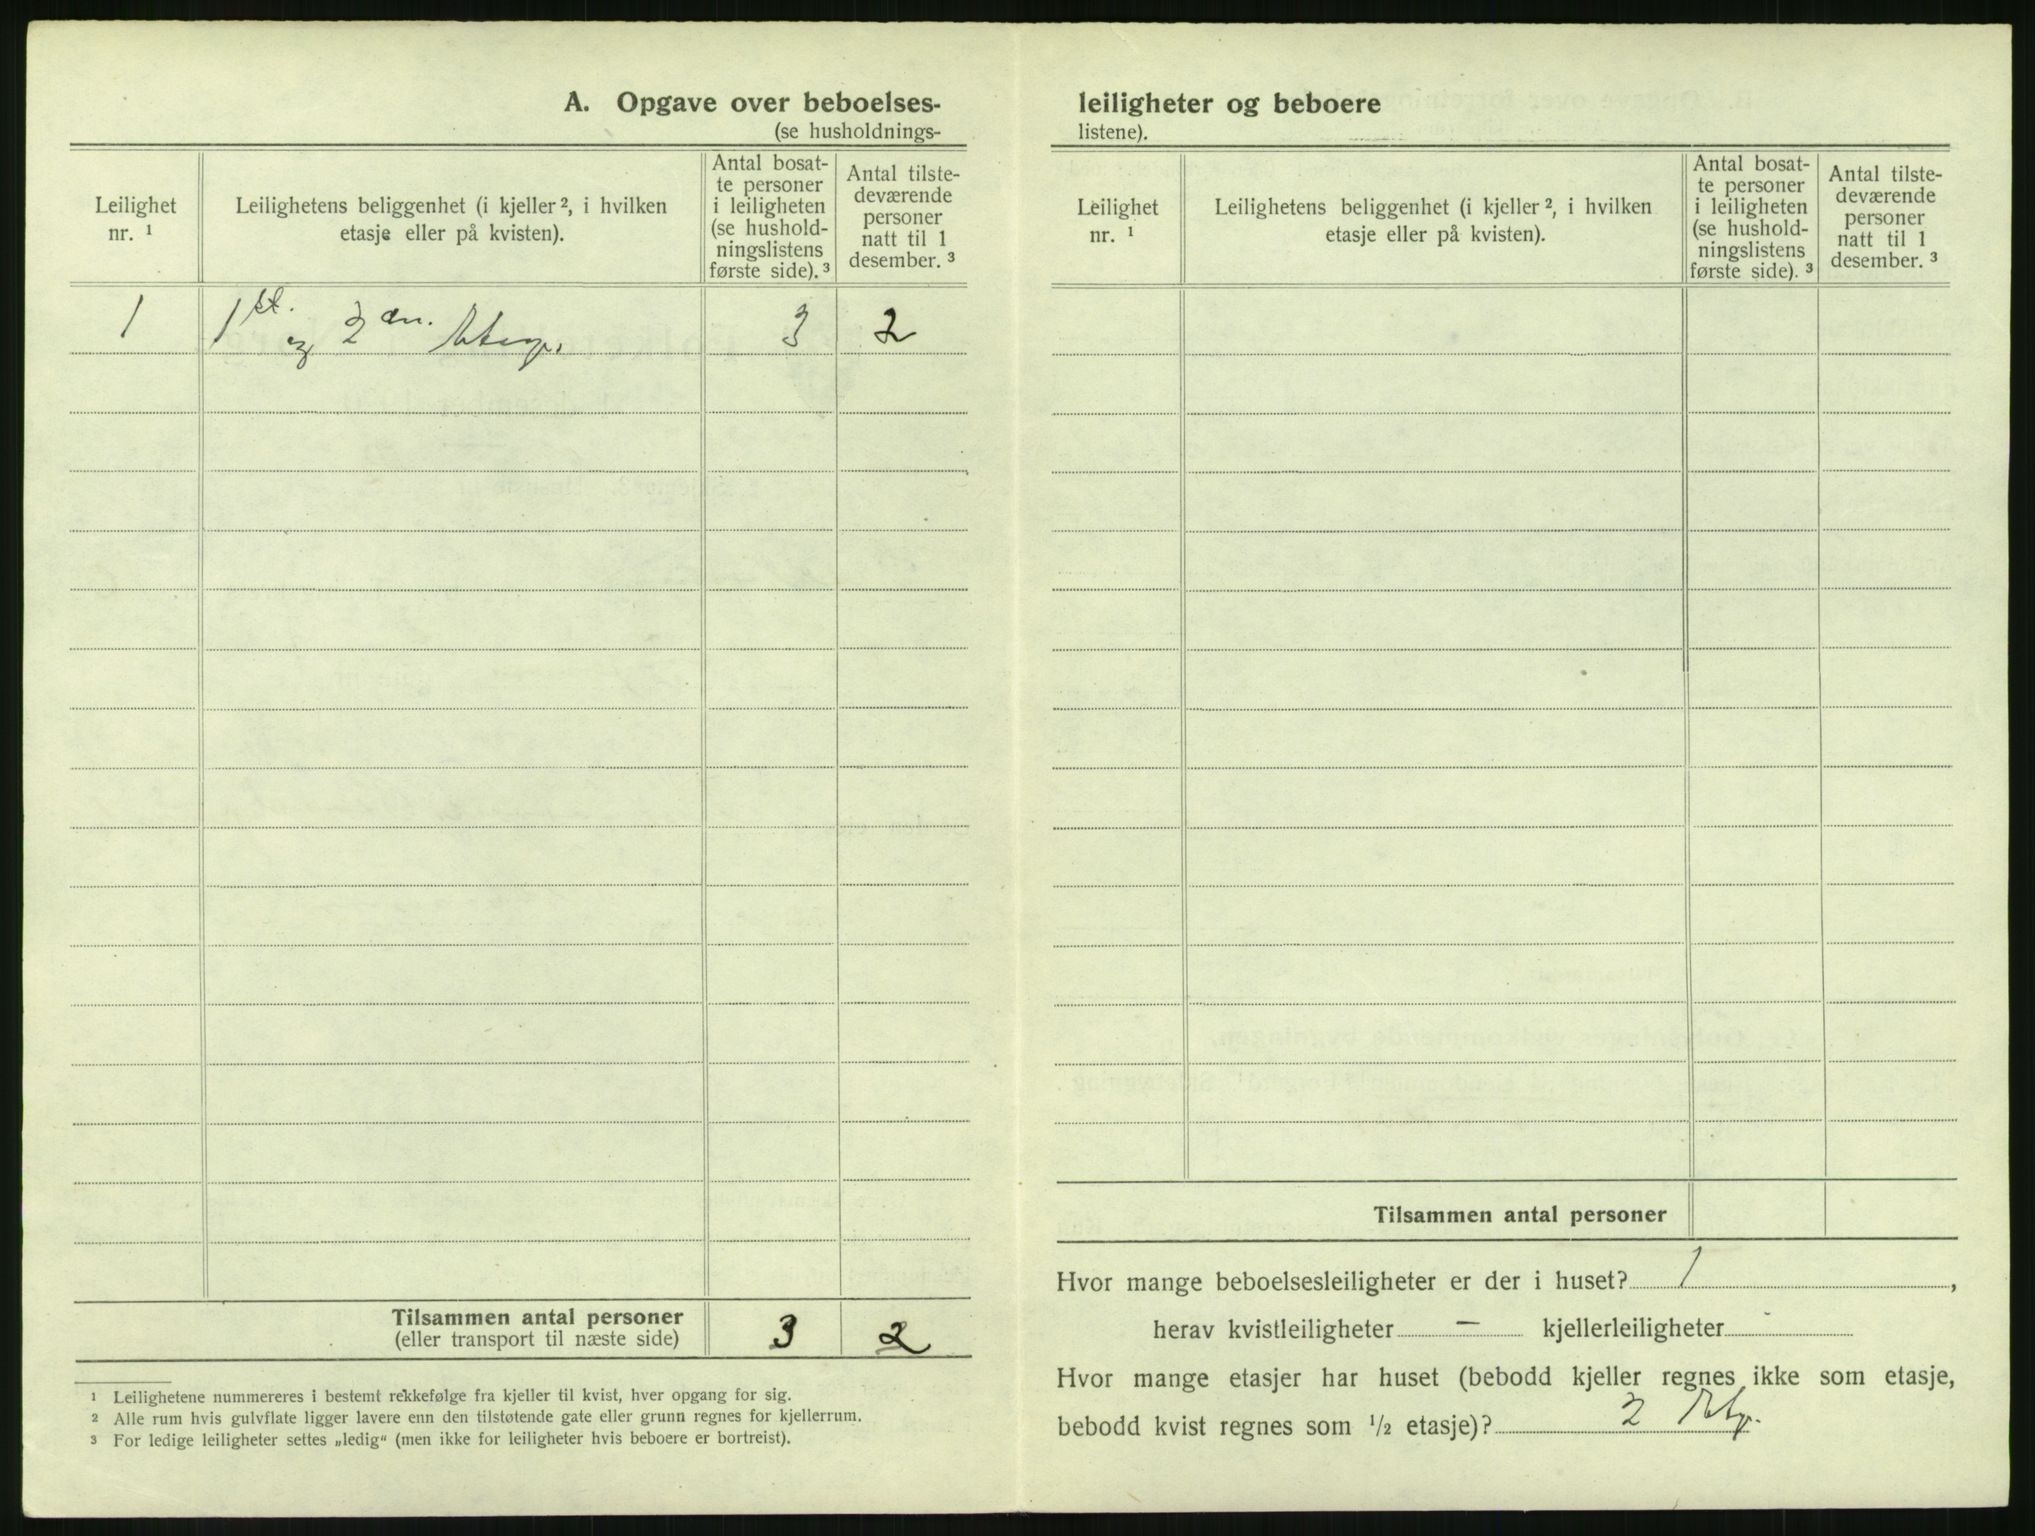 A. Opgave over beboelses-
(se husholdnings-
Leilighet
nr. ¹
Leilighetens beliggenhet (i kjeller ², i hvilken
etasje eller på kvisten).
Antal bosat-
te personer
i leiligheten
(se hushold-
ningslistens
første side). ³
Antal tilste-
deværende
personer
natt til 1
desember. ³
1 1st. og 2den. Etage. 3 2
Tilsammen antal personer 3 2
(eller transport til næste side)
¹ Leilighetene nummereres i bestemt rekkefølge fra kjeller til kvist, hver opgang for sig.
² Alle rum hvis gulvflate ligger lavere enn den tilstøtende gate eller grunn regnes for kjellerrum.
³ For ledige leiligheter settes „ledig“ (men ikke for leiligheter hvis beboere er bortreist).
leiligheter og beboere
listene).
Leilighet
nr. ¹
Leilighetens beliggenhet (i kjeller ², i hvilken
etasje eller på kvisten).
Antal bosat-
te personer
i leiligheten
(se hushold-
ningslistens
første side). ³
Antal tilste-
deværende
personer
natt til 1
desember. ³
Tilsammen antal personer
Hvor mange beboelsesleiligheter er der i huset? 1,
herav kvistleiligheter – kjellerleiligheter
Hvor mange etasjer har huset (bebodd kjeller regnes ikke som etasje,
bebodd kvist regnes som ½ etasje)? 2 Etg.